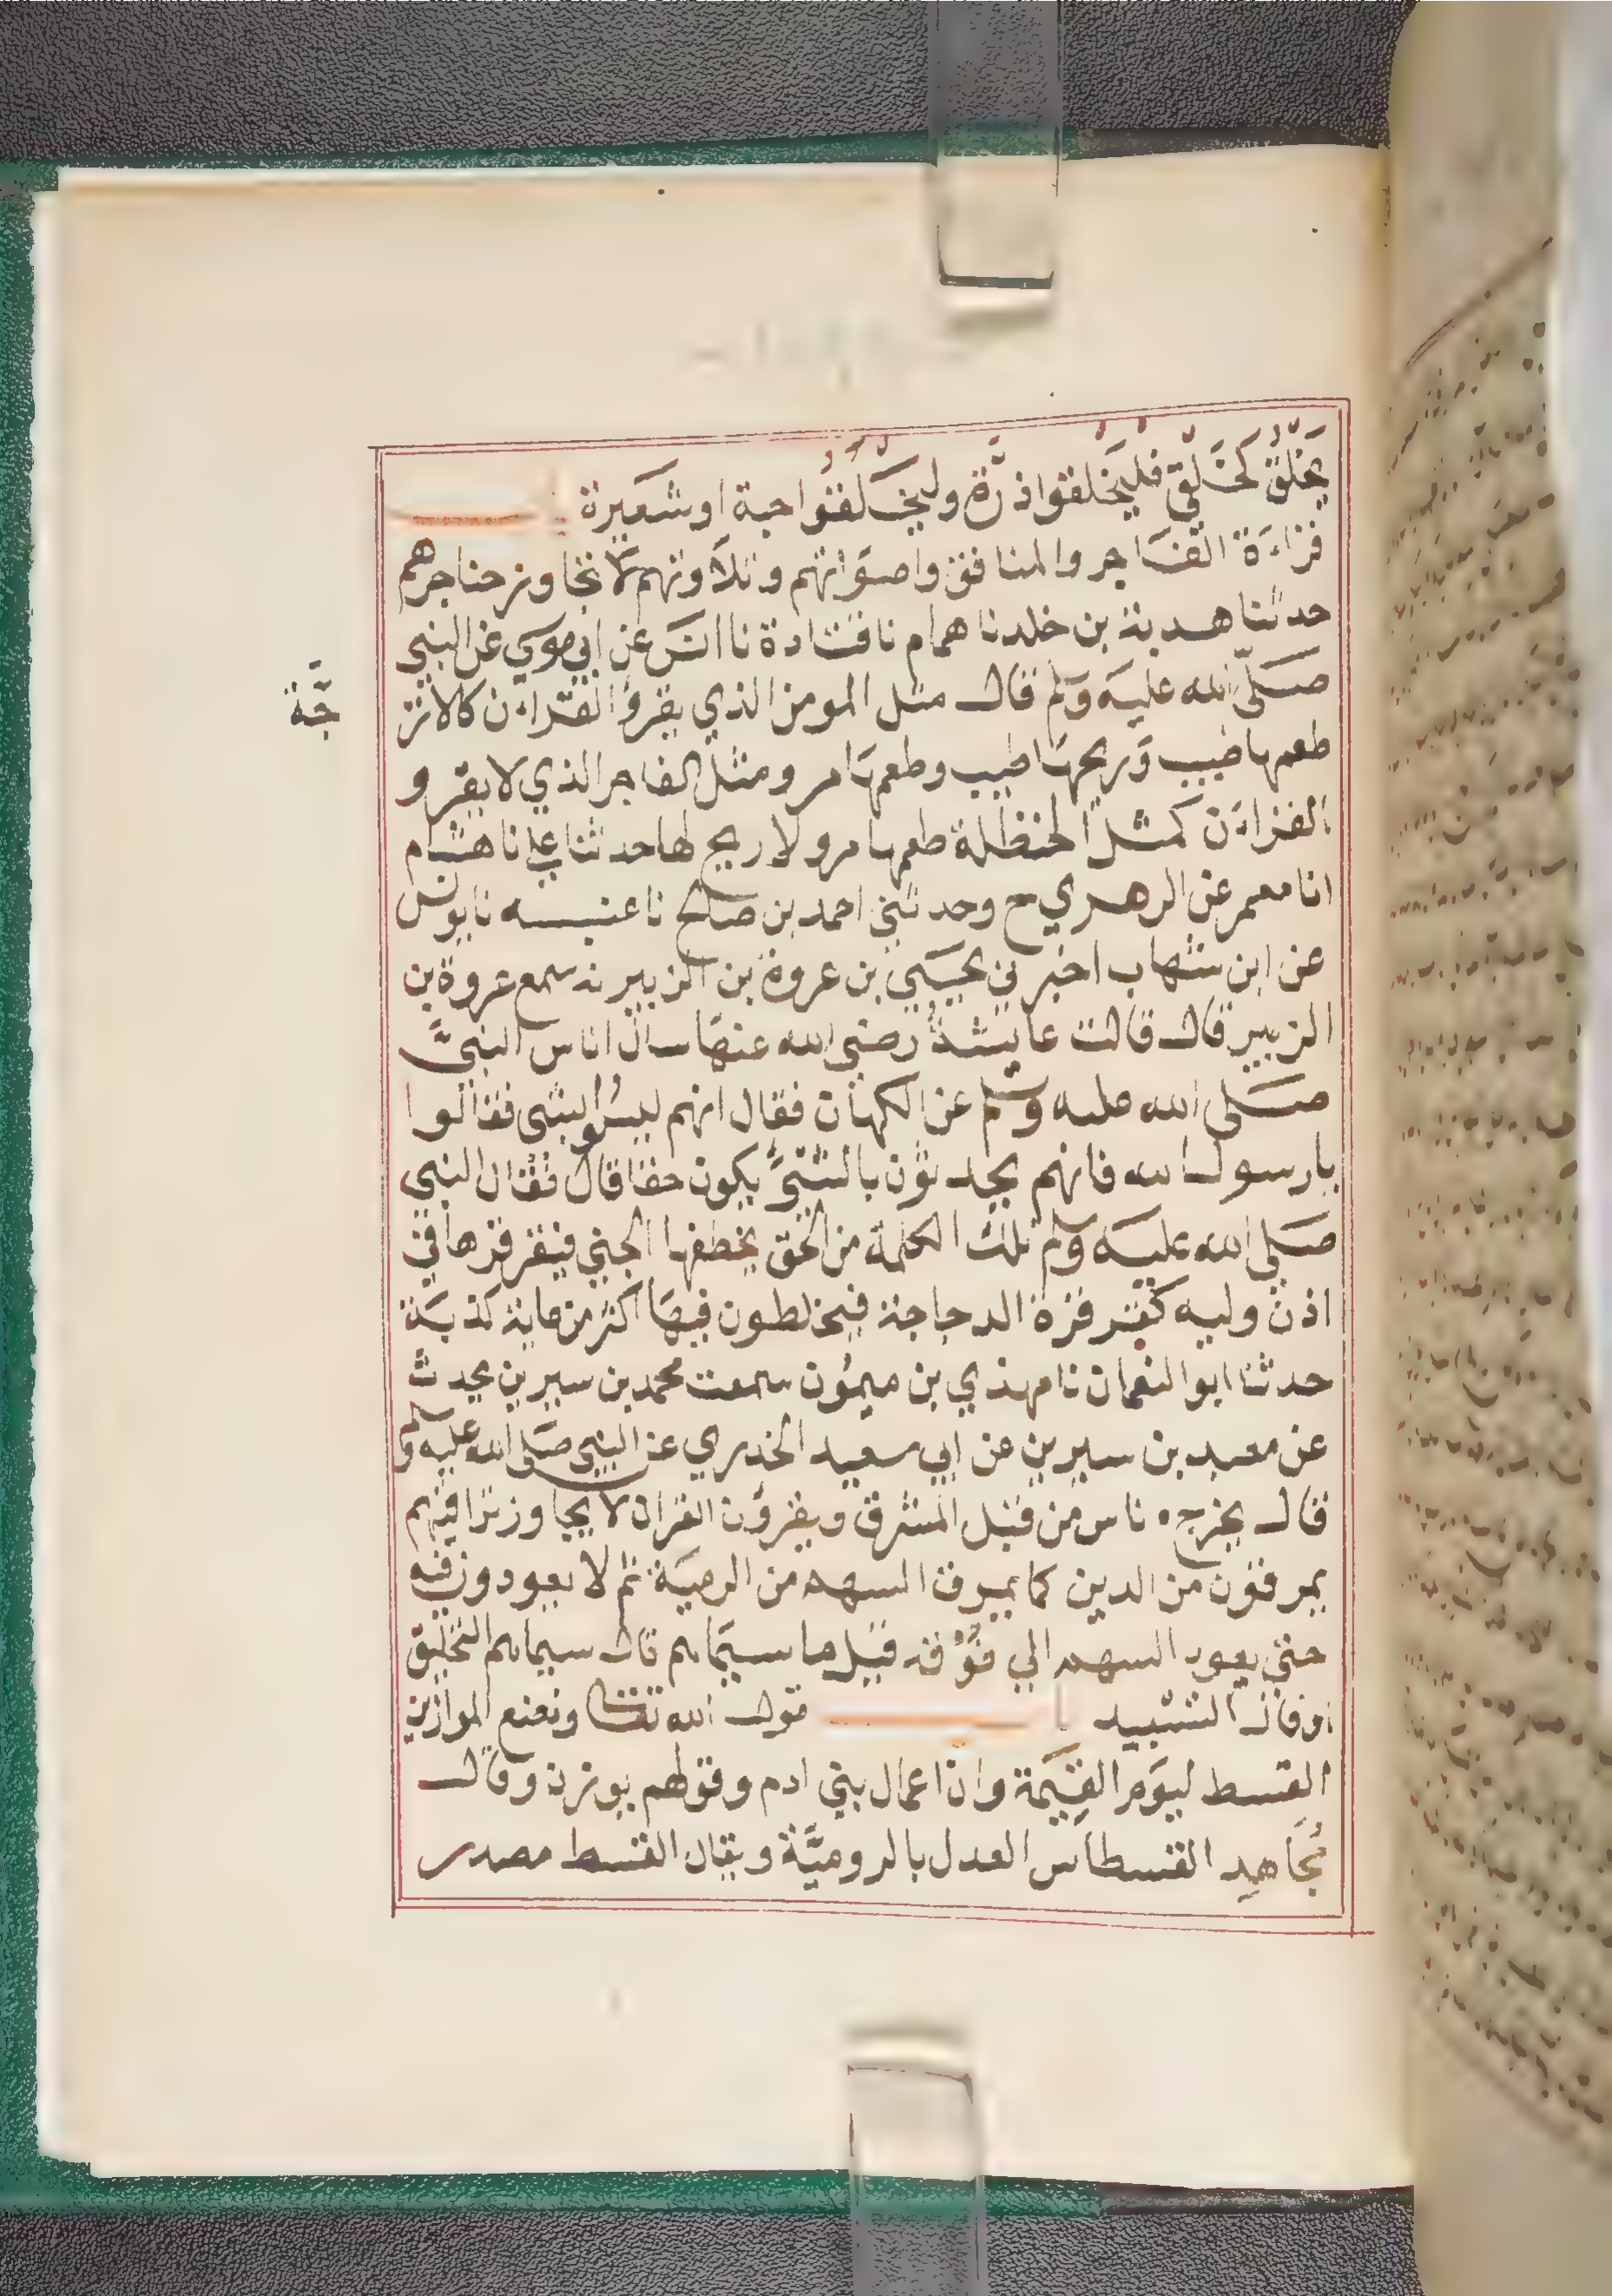 يَخْلُقُ كَخَلْقِي فَلْيَخْلُقُوا ذَرَّةً وليَخْلُقُوا حبة او شَعِيرة
قراءة الفاجر والمنافق واصواتهم وتلاوتهم لا تجاوز حناجرهم
حدثنا هدبة بن خلد نا همام نا قتادة نا انس عن ابي موسي عن النبي
صلى الله عليه وسلم قال مثل المومن الذي يقرؤ القراءن كالاتر
جَّة
طعمها طيب وريحها طيب وطعمها مر ومثل الفاجر الذي لا يقرو
القراءن كمثل الحنظلة طعمها مر ولا ريح لها حدثنا علي نا هشام
انا معمر عن الزهري ح وحدثني احمد بن صالح نا عنبسه نا يونس
عن ابن شهاب اخبرني يحيي بن عروة بن الزبير نه سمع عروة بن
الزبير قال قالت عايشة رضى الله عنها سال اناس النبىَّ
صلى الله عليه وسلم عن الكهان فقال انهم ليسوا بشى فقالوا
يارسول الله فانهم يحدثون بالشىَّ يكون حقا قال فقال النبي
صلى الله عليه وسلم تلك الكلمة من الحق يخطفها الجني فيقرقرها في
اذن وليه كقرقرة الدجاجة فيخلطون فيها اكثر من ماية كذبة
حدثنا ابو النعمان نا مهدي بن ميمون سمعت محمد بن سيرين يحدث
عن معبد بن سيرين عن ابي سعيد الخدري عن النبي صلى الله عليه وسلم
قال يخرج ناس من قبل المشرق ويقرؤن القران لا يجاوز تراقيهم
يمرقون من الدين كما يمرق السهم من الرمية ثم لا يعودون فيه
حتى يعود السهم الي فُوْقه قيل ما سيماهم قال سيماهم التحليق
او قال التسبيد قول الله تعالى ونضع الموازين
القسط ليوم القيمة وان اعمال بني ادم وقولهم يوزن وقال
مُجَاهِد القسطاس العدل بالروميَّة ويقال القسط مصدر